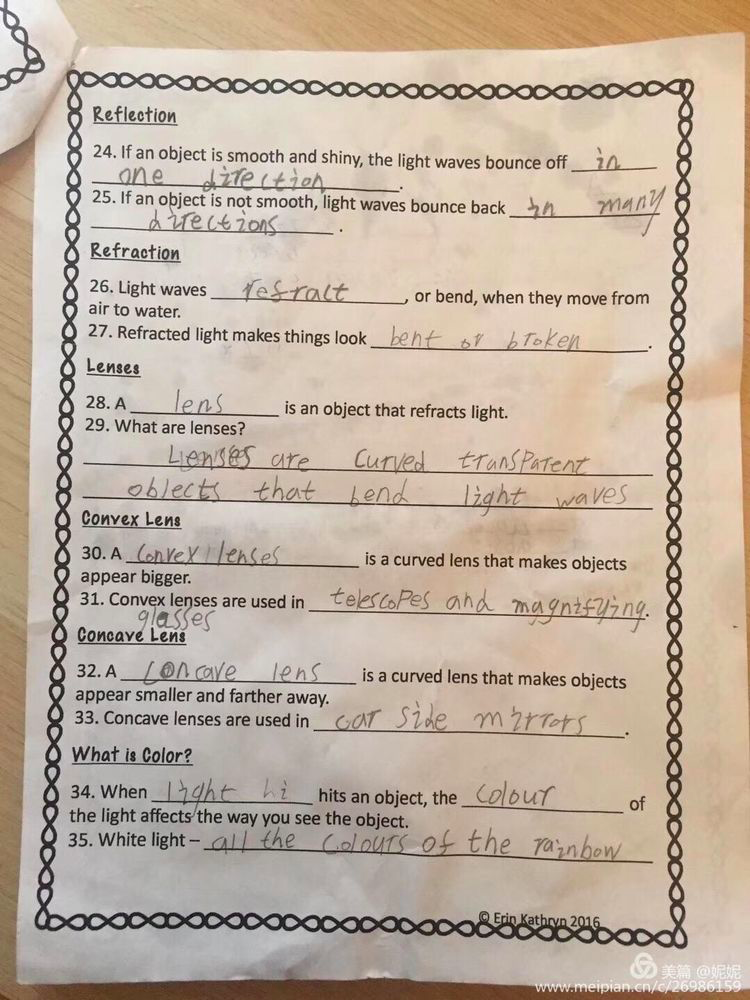 Reflection
24. If an object is smooth and shiny, the light waves bounce off in
one direction.
25. If an object is not smooth, light waves bounce back in many
directions.
Refraction
26. Light waves refralt, or bend, when they move from
air to water.
27. Refracted light makes things look bent or broken.
Lenses
28. A lens is an object that refracts light.
29. What are lenses?
Lenses are curved transparent
objects that bend light waves
Convex Lens
30. A convex lenses is a curved lens that makes objects
appear bigger.
31. Convex lenses are used in telescopes and magnifying.
glasses
Concave Lens
32. A concave lens is a curved lens that makes objects
appear smaller and farther away.
33. Concave lenses are used in car side mirrors.
What is Color?
34. When light hi hits an object, the colour of
the light affects the way you see the object.
35. White light – all the colours of the rainbow
© Erin Kathryn 2016
美篇 @妮妮
www.meipian.cn/c/26986159